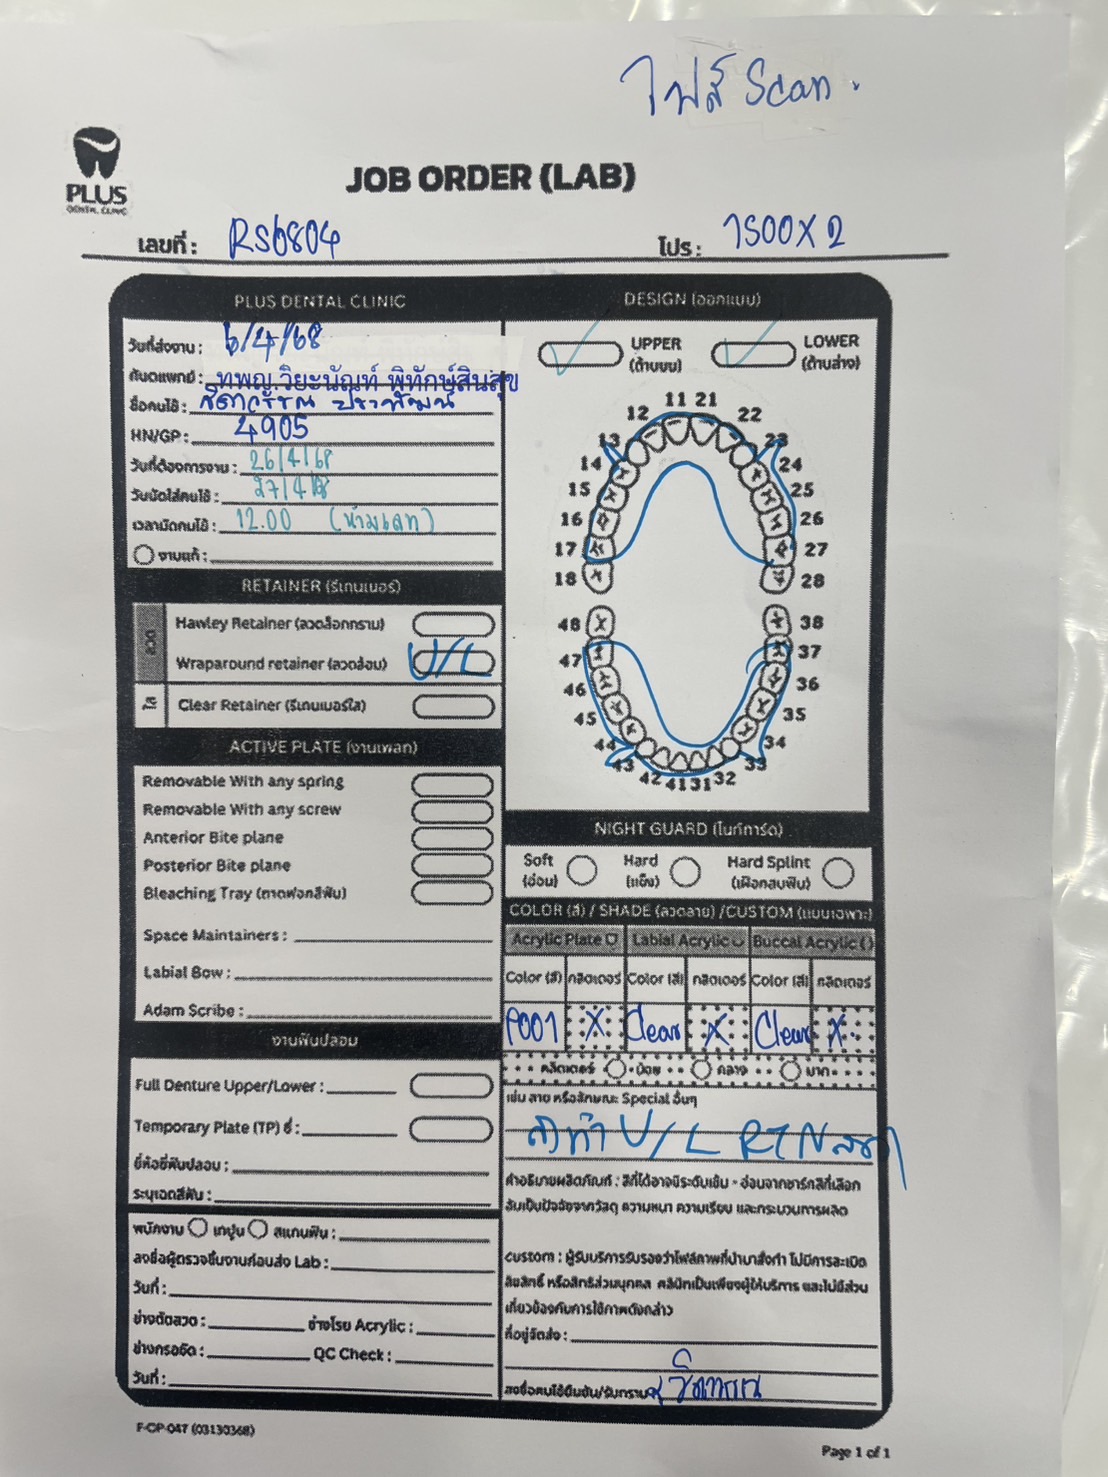 ไฟล์ Scan.
PLUS
DENTAL CLINIC
JOB ORDER (LAB)
เลขที่ : RS6804
โปร : 1500 X 2
PLUS DENTAL CLINIC
วันที่ส่งงาน : 6/4/68
ทันตแพทย์ : ทพญ.วิยะนัณท์ พิทักษ์สินสุข
ชื่อคนไข้ :
HN/GP : 4905
วันที่ต้องการงาน : 26/4/68
วันนัดใส่คนไข้ : 27/4/68
เวลานัดคนไข้ : 12.00 (ห้ามเลท)
งานแก้ :
RETAINER (รีเทนเนอร์)
ลวด
Hawley Retainer (ลวดล็อกกราม)
Wraparound retainer (ลวดล้อม) U/L
ใส
Clear Retainer (รีเทนเนอร์ใส)
ACTIVE PLATE (งานเพลท)
Removable With any spring
Removable With any screw
Anterior Bite plane
Posterior Bite plane
Bleaching Tray (ถาดฟอกสีฟัน)
Space Maintainers :
Labial Bow :
Adam Scribe :
งานฟันปลอม
Full Denture Upper/Lower :
Temporary Plate (TP) ซี่ :
ยี่ห้อซี่ฟันปลอม :
ระบุเฉดสีฟัน :
พนักงาน เทปูน สแกนฟัน :
ลงชื่อผู้ตรวจชิ้นงานก่อนส่ง Lab :
วันที่ :
ช่างดัดลวด : ช่างโรย Acrylic :
ช่างกรอขัด : QC Check :
วันที่ :
DESIGN (ออกแบบ)
UPPER
(ด้านบน)
LOWER
(ด้านล่าง)
11 21
12 22
13 23
14 24
15 25
16 26
17 27
18 28
48 38
47 37
46 36
45 35
44 34
43 33
42 41 31 32
NIGHT GUARD (ไนท์การ์ด)
Soft
(อ่อน)
Hard
(แข็ง)
Hard Splint
(เฝือกสบฟัน)
COLOR (สี) / SHADE (ลวดลาย) /CUSTOM (แบบเฉพาะ)
Acrylic Plate Labial Acrylic Buccal Acrylic
Color (สี) กลิตเตอร์ Color (สี) กลิตเตอร์ Color (สี) กลิตเตอร์
P001 X Clear X Clear X
กลิตเตอร์ น้อย กลาง มาก
เช่น ลาย หรือลักษณะ Special อื่นๆ
U/L RTN
คำอธิบายผลิตภัณฑ์ : สีที่ได้อาจมีระดับเข้ม - อ่อนจากชาร์ทสีที่เลือก
อันเป็นปัจจัยจากวัสดุ ความหนา ความเรียบ และกระบวนการผลิต
custom : ผู้รับบริการรับรองว่าไฟล์ภาพที่นำมาสั่งทำ ไม่มีการละเมิด
ลิขสิทธิ์ หรือสิทธิส่วนบุคคล คลินิกเป็นเพียงผู้ให้บริการ และไม่มีส่วน
เกี่ยวข้องกับการใช้ภาพดังกล่าว
ที่อยู่จัดส่ง :
ลงชื่อคนไข้ยืนยัน/รับทราบ
F-CP-047 (03130368)
Page 1 of 1